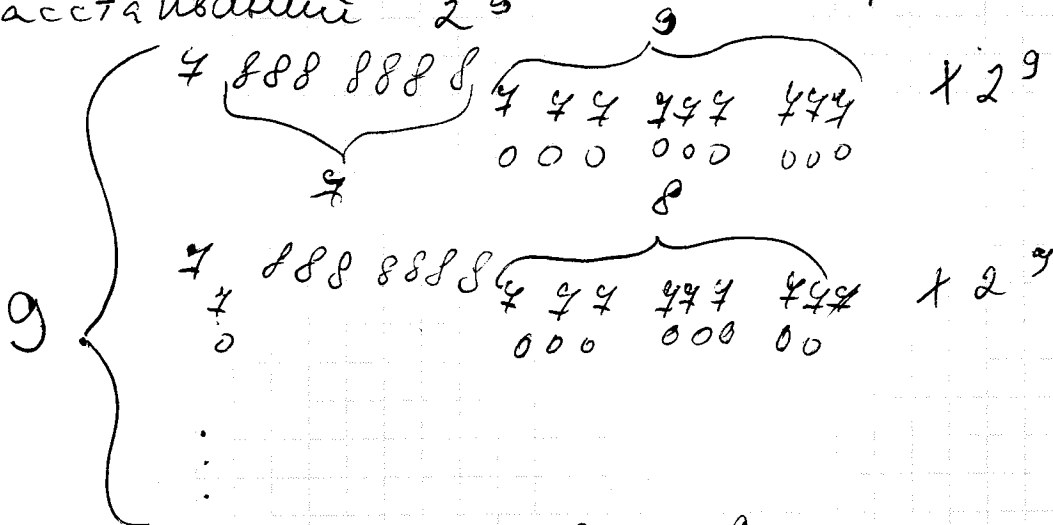 2⁹
9
7 888 8888 777 777 777 × 2⁹
000 000 000
7
8
7 888 8888 777 777 777 × 2⁹
7
0 000 000 00
9